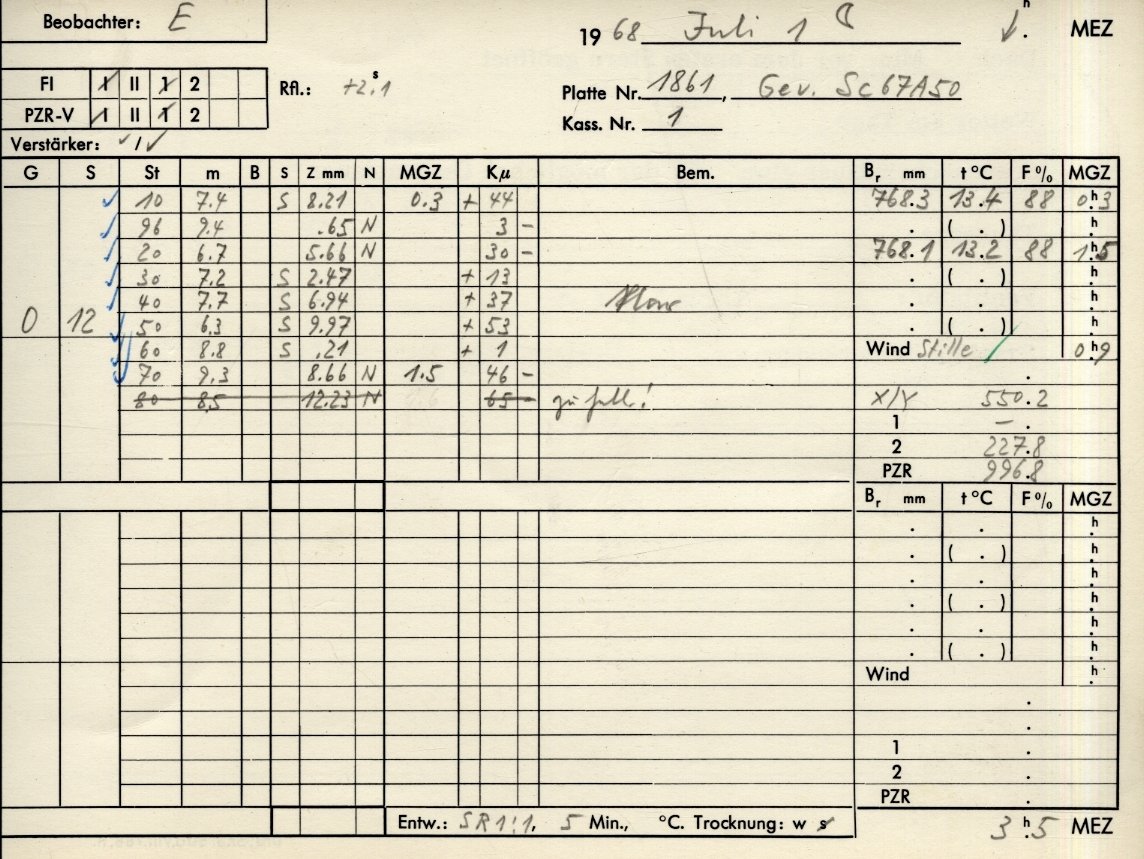 Beobachter: E
1968 Juli 1 h. MEZ
FI I II 1 2
Rfl.: +2.ˢ1
Platte Nr. 1861, Gev. Sc67A50
PZR-V I II 1 2
Kass. Nr. 1
Verstärker:
G S St m B S Z mm N MGZ Kµ Bem. Bᵣ mm t °C F % MGZ
10 7.4 S 8.21 0.3 + 44 768.3 13.4 88 0.ʰ3
96 9.4 .65 N 3 - . ( . ) .ʰ
20 6.7 5.66 N 30 - 768.1 13.2 88 1.ʰ5
30 7.2 S 2.47 + 13 . ( . ) .ʰ
40 7.7 S 6.94 + 37 . . .ʰ
0 12 50 6.3 S 9.97 + 53 . ( . ) .ʰ
60 8.8 S .21 + 1 Wind Stille 0.ʰ9
70 9.3 8.66 N 1.5 46 - .
80 8.5 12.23 N 65 - zu hell! X/Y 550.2
1 - .
2 227.8
PZR 996.8
Bᵣ mm t °C F % MGZ
. . .ʰ
. ( . ) .ʰ
. . .ʰ
. ( . ) .ʰ
. . .ʰ
. ( . ) .ʰ
Wind .ʰ
.
.
1 .
2 .
PZR .
Entw.: SR 1:1, 5 Min., °C. Trocknung: w s
3.ʰ5 MEZ